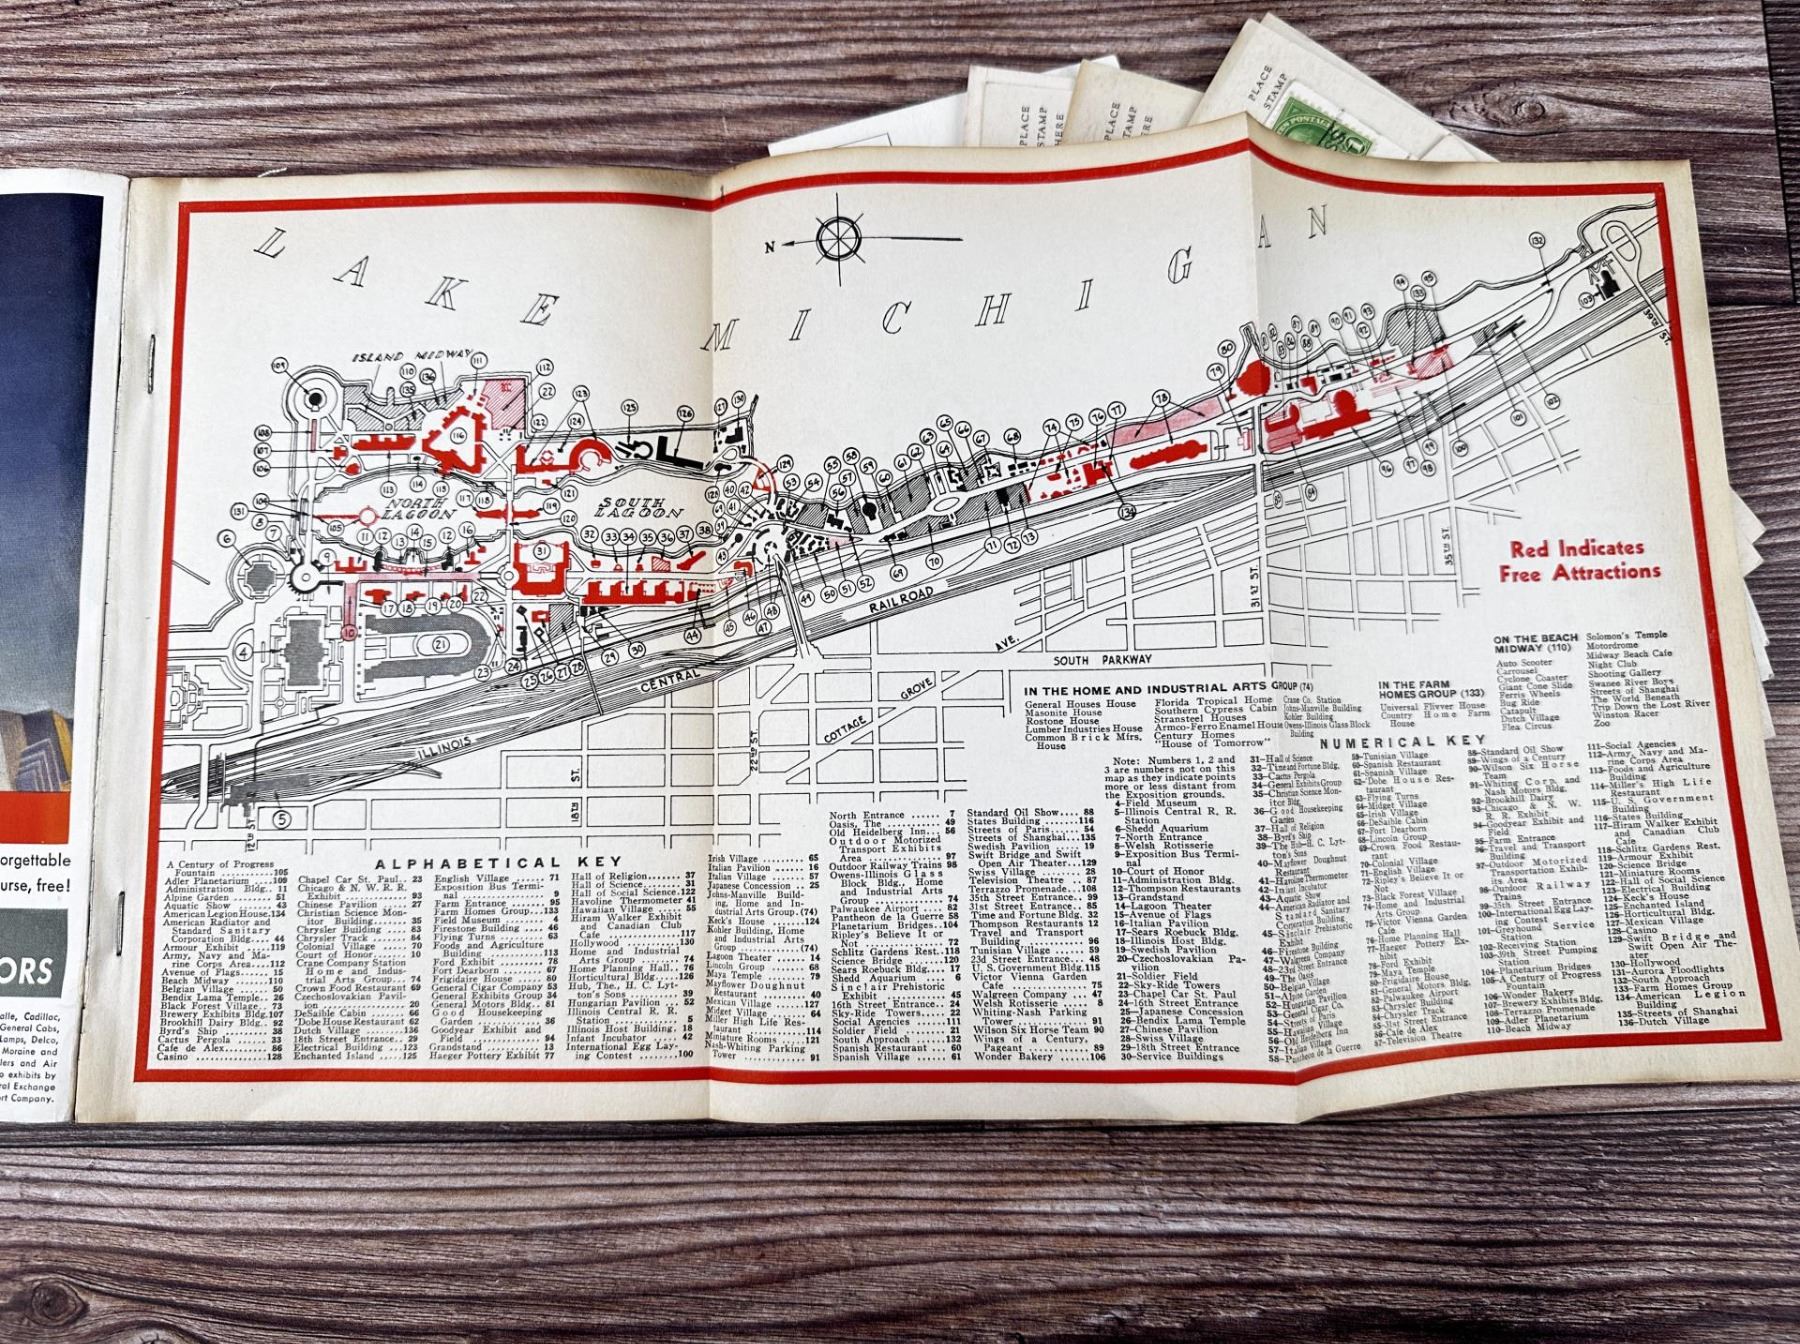 PLACE
STAMP
HERE
PLACE
STAMP
HERE
PLACE
STAMP
LAKE MICHIGAN
N
ISLAND MIDWAY
NORTH
LAGOON
SOUTH
LAGOON
ILLINOIS CENTRAL RAILROAD
SOUTH PARKWAY
AVE.
COTTAGE GROVE
12TH ST.
18TH ST.
22ND ST.
31ST ST.
35TH ST.
39TH ST.
Red Indicates
Free Attractions
orgettable
urse, free!
ORS
alle, Cadillac,
General Cabs,
Lamps, Delco,
Moraine and
lers and Air
o exhibits by
ral Exchange
ort Company.
IN THE HOME AND INDUSTRIAL ARTS GROUP (74)
General Houses House
Masonite House
Rostone House
Lumber Industries House
Common Brick Mfrs.
House
Florida Tropical Home
Southern Cypress Cabin
Stransteel Houses
Armco-Ferro Enamel House
Century Homes
"House of Tomorrow"
Crane Co. Station
Johns-Manville Building
Kohler Building
Owens-Illinois Glass Block
Building
IN THE FARM
HOMES GROUP (133)
Universal Flivver House
Country Home Farm
House
ON THE BEACH
MIDWAY (110)
Auto Scooter
Carrousel
Cyclone Coaster
Giant Cone Slide
Ferris Wheels
Bug Ride
Catapult
Dutch Village
Flea Circus
Solomon's Temple
Motordrome
Midway Beach Cafe
Night Club
Shooting Gallery
Swanee River Boys
Streets of Shanghai
The World Beneath
Trip Down the Lost River
Winston Racer
Zoo
ALPHABETICAL KEY
A Century of Progress
Fountain 105
Adler Planetarium 109
Administration Bldg. 11
Alpine Garden 51
Aquatic Show 43
American Legion House 134
American Radiator and
Standard Sanitary
Corporation Bldg. 44
Armour Exhibit 119
Army, Navy and Ma-
rine Corps Area 112
Avenue of Flags 15
Beach Midway 110
Belgian Village 50
Bendix Lama Temple 26
Black Forest Village 73
Brewery Exhibits Bldg. 107
Brookhill Dairy Bldg. 92
Byrd's Ship 38
Cactus Pergola 33
Cafe de Alex 86
Casino 128
Chapel Car St. Paul 23
Chicago & N. W. R. R.
Exhibit 93
Chinese Pavilion 27
Christian Science Mon-
itor Building 35
Chrysler Building 83
Chrysler Track 84
Colonial Village 70
Court of Honor 10
Crane Company Station
Home and Indus-
trial Arts Group 74
Crown Food Restaurant 69
Czechoslovakian Pavil-
ion 20
DeSaible Cabin 66
'Dobe House Restaurant 62
Dutch Village 136
18th Street Entrance 29
Electrical Building 123
Enchanted Island 125
English Village 71
Exposition Bus Termi-
nal 9
Farm Entrance 95
Farm Homes Group 133
Field Museum 4
Firestone Building 46
Flying Turns 63
Foods and Agriculture
Building 113
Ford Exhibit 78
Fort Dearborn 67
Frigidaire House 80
General Cigar Company 53
General Exhibits Group 34
General Motors Bldg. 81
Good Housekeeping
Garden 36
Goodyear Exhibit and
Field 94
Grandstand 13
Haeger Pottery Exhibit 77
Hall of Religion 37
Hall of Science 31
Hall of Social Science 122
Havoline Thermometer 41
Hawaiian Village 55
Hiram Walker Exhibit
and Canadian Club
Cafe 117
Hollywood 130
Home and Industrial
Arts Group 74
Home Planning Hall 76
Horticultural Bldg. 126
Hub, The, H. C. Lyt-
ton's Sons 39
Hungarian Pavilion 52
Illinois Central R. R.
Station 5
Illinois Host Building 18
Infant Incubator 42
International Egg Lay-
ing Contest 100
Irish Village 65
Italian Pavilion 16
Italian Village 57
Japanese Concession 25
Johns-Manville Build-
ing, Home and In-
dustrial Arts Group (74)
Keck's House 124
Kohler Building, Home
and Industrial Arts
Group (74)
Lagoon Theater 14
Lincoln Group 68
Maya Temple 79
Mayflower Doughnut
Restaurant 40
Mexican Village 127
Midget Village 64
Miller High Life Res-
taurant 114
Miniature Rooms 121
Nash-Whiting Parking
Tower 91
North Entrance 7
Oasis, The 49
Old Heidelberg Inn 56
Outdoor Motorized
Transport Exhibits
Area 97
Outdoor Railway Trains 98
Owens-Illinois Glass
Block Bldg., Home
and Industrial Arts
Group 74
Palwaukee Airport 82
Pantheon de la Guerre 58
Planetarium Bridges 104
Ripley's Believe It or
Not 72
Schlitz Gardens Rest. 118
Science Bridge 120
Sears Roebuck Bldg. 17
Shedd Aquarium 6
Sinclair Prehistoric
Exhibit 45
16th Street Entrance 24
Sky-Ride Towers 22
Social Agencies 111
Soldier Field 21
South Approach 132
Spanish Restaurant 60
Spanish Village 61
Standard Oil Show 88
States Building 116
Streets of Paris 54
Streets of Shanghai 135
Swedish Pavilion 19
Swift Bridge and Swift
Open Air Theater 129
Swiss Village 28
Television Theatre 87
Terrazzo Promenade 108
35th Street Entrance 99
31st Street Entrance 85
Time and Fortune Bldg. 32
Thompson Restaurants 12
Travel and Transport
Building 96
Tunisian Village 59
23d Street Entrance 48
U. S. Government Bldg. 115
Victor Vienna Garden
Cafe 75
Walgreen Company 47
Welsh Rotisserie 8
Whiting-Nash Parking
Tower 91
Wilson Six Horse Team 90
Wings of a Century,
Pageant 89
Wonder Bakery 106
NUMERICAL KEY
Note: Numbers 1, 2 and
3 are numbers not on this
map as they indicate points
more or less distant from
the Exposition grounds.
4—Field Museum
5—Illinois Central R. R.
Station
6—Shedd Aquarium
7—North Entrance
8—Welsh Rotisserie
9—Exposition Bus Termi-
nal
10—Court of Honor
11—Administration Bldg.
12—Thompson Restaurants
13—Grandstand
14—Lagoon Theater
15—Avenue of Flags
16—Italian Pavilion
17—Sears Roebuck Bldg.
18—Illinois Host Bldg.
19—Swedish Pavilion
20—Czechoslovakian Pa-
vilion
21—Soldier Field
22—Sky-Ride Towers
23—Chapel Car St. Paul
24—16th Street Entrance
25—Japanese Concession
26—Bendix Lama Temple
27—Chinese Pavilion
28—Swiss Village
29—18th Street Entrance
30—Service Buildings
31—Hall of Science
32—Time and Fortune Bldg.
33—Cactus Pergola
34—General Exhibits Group
35—Christian Science Mon-
itor Bldg.
36—Good Housekeeping
Garden
37—Hall of Religion
38—Byrd's Ship
39—The Hub—H. C. Lyt-
ton's Sons
40—Mayflower Doughnut
Restaurant
41—Havoline Thermometer
42—Infant Incubator
43—Aquatic Show
44—American Radiator and
Standard Sanitary
Corporation Building
45—Sinclair Prehistoric
Exhibit
46—Firestone Building
47—Walgreen Company
48—23rd Street Entrance
49—The Oasis
50—Belgian Village
51—Alpine Garden
52—Hungarian Pavilion
53—General Cigar Co.
54—Streets of Paris
55—Hawaiian Village
56—Old Heidelberg Inn
57—Italian Village
58—Pantheon de la Guerre
59—Tunisian Village
60—Spanish Restaurant
61—Spanish Village
62—'Dobe House Res-
taurant
63—Flying Turns
64—Midget Village
65—Irish Village
66—DeSaible Cabin
67—Fort Dearborn
68—Lincoln Group
69—Crown Food Restau-
rant
70—Colonial Village
71—English Village
72—Ripley's Believe It or
Not
73—Black Forest Village
74—Home and Industrial
Arts Group
75—Victor Vienna Garden
Cafe
76—Home Planning Hall
77—Haeger Pottery Ex-
hibit
78—Ford Exhibit
79—Maya Temple
80—Frigidaire House
81—General Motors Bldg.
82—Palwaukee Airport
83—Chrysler Building
84—Chrysler Track
85—31st Street Entrance
86—Cafe de Alex
87—Television Theatre
88—Standard Oil Show
89—Wings of a Century
90—Wilson Six Horse
Team
91—Whiting Corp. and
Nash Motors Bldg.
92—Brookhill Dairy
93—Chicago & N. W.
R. R. Exhibit
94—Goodyear Exhibit and
Field
95—Farm Entrance
96—Travel and Transport
Building
97—Outdoor Motorized
Transportation Exhib-
its Area
98—Outdoor Railway
Trains
99—35th Street Entrance
100—International Egg Lay-
ing Contest
101—Greyhound Service
Station
102—Receiving Station
103—39th Street Pumping
Station
104—Planetarium Bridges
105—A Century of Progress
Fountain
106—Wonder Bakery
107—Brewery Exhibits Bldg.
108—Terrazzo Promenade
109—Adler Planetarium
110—Beach Midway
111—Social Agencies
112—Army, Navy and Ma-
rine Corps Area
113—Foods and Agriculture
Building
114—Miller's High Life
Restaurant
115—U. S. Government
Building
116—States Building
117—Hiram Walker Exhibit
and Canadian Club
Cafe
118—Schlitz Gardens Rest.
119—Armour Exhibit
120—Science Bridge
121—Miniature Rooms
122—Hall of Social Science
123—Electrical Building
124—Keck's House
125—Enchanted Island
126—Horticultural Bldg.
127—Mexican Village
128—Casino
129—Swift Bridge and
Swift Open Air The-
ater
130—Hollywood
131—Aurora Floodlights
132—South Approach
133—Farm Homes Group
134—American Legion
Building
135—Streets of Shanghai
136—Dutch Village